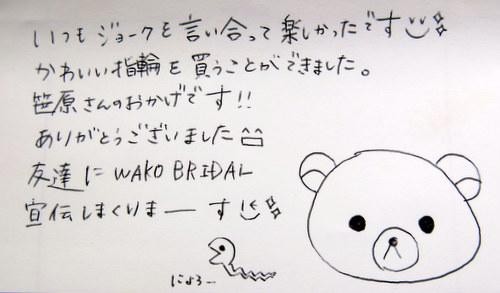 いつもジョークを言い合って楽しかったです
かわいい指輪を買うことができました。
笹原さんのおかげです!!
ありがとうございました
友達に WAKO BRIDAL
宣伝しまくりまーす
にょろ…